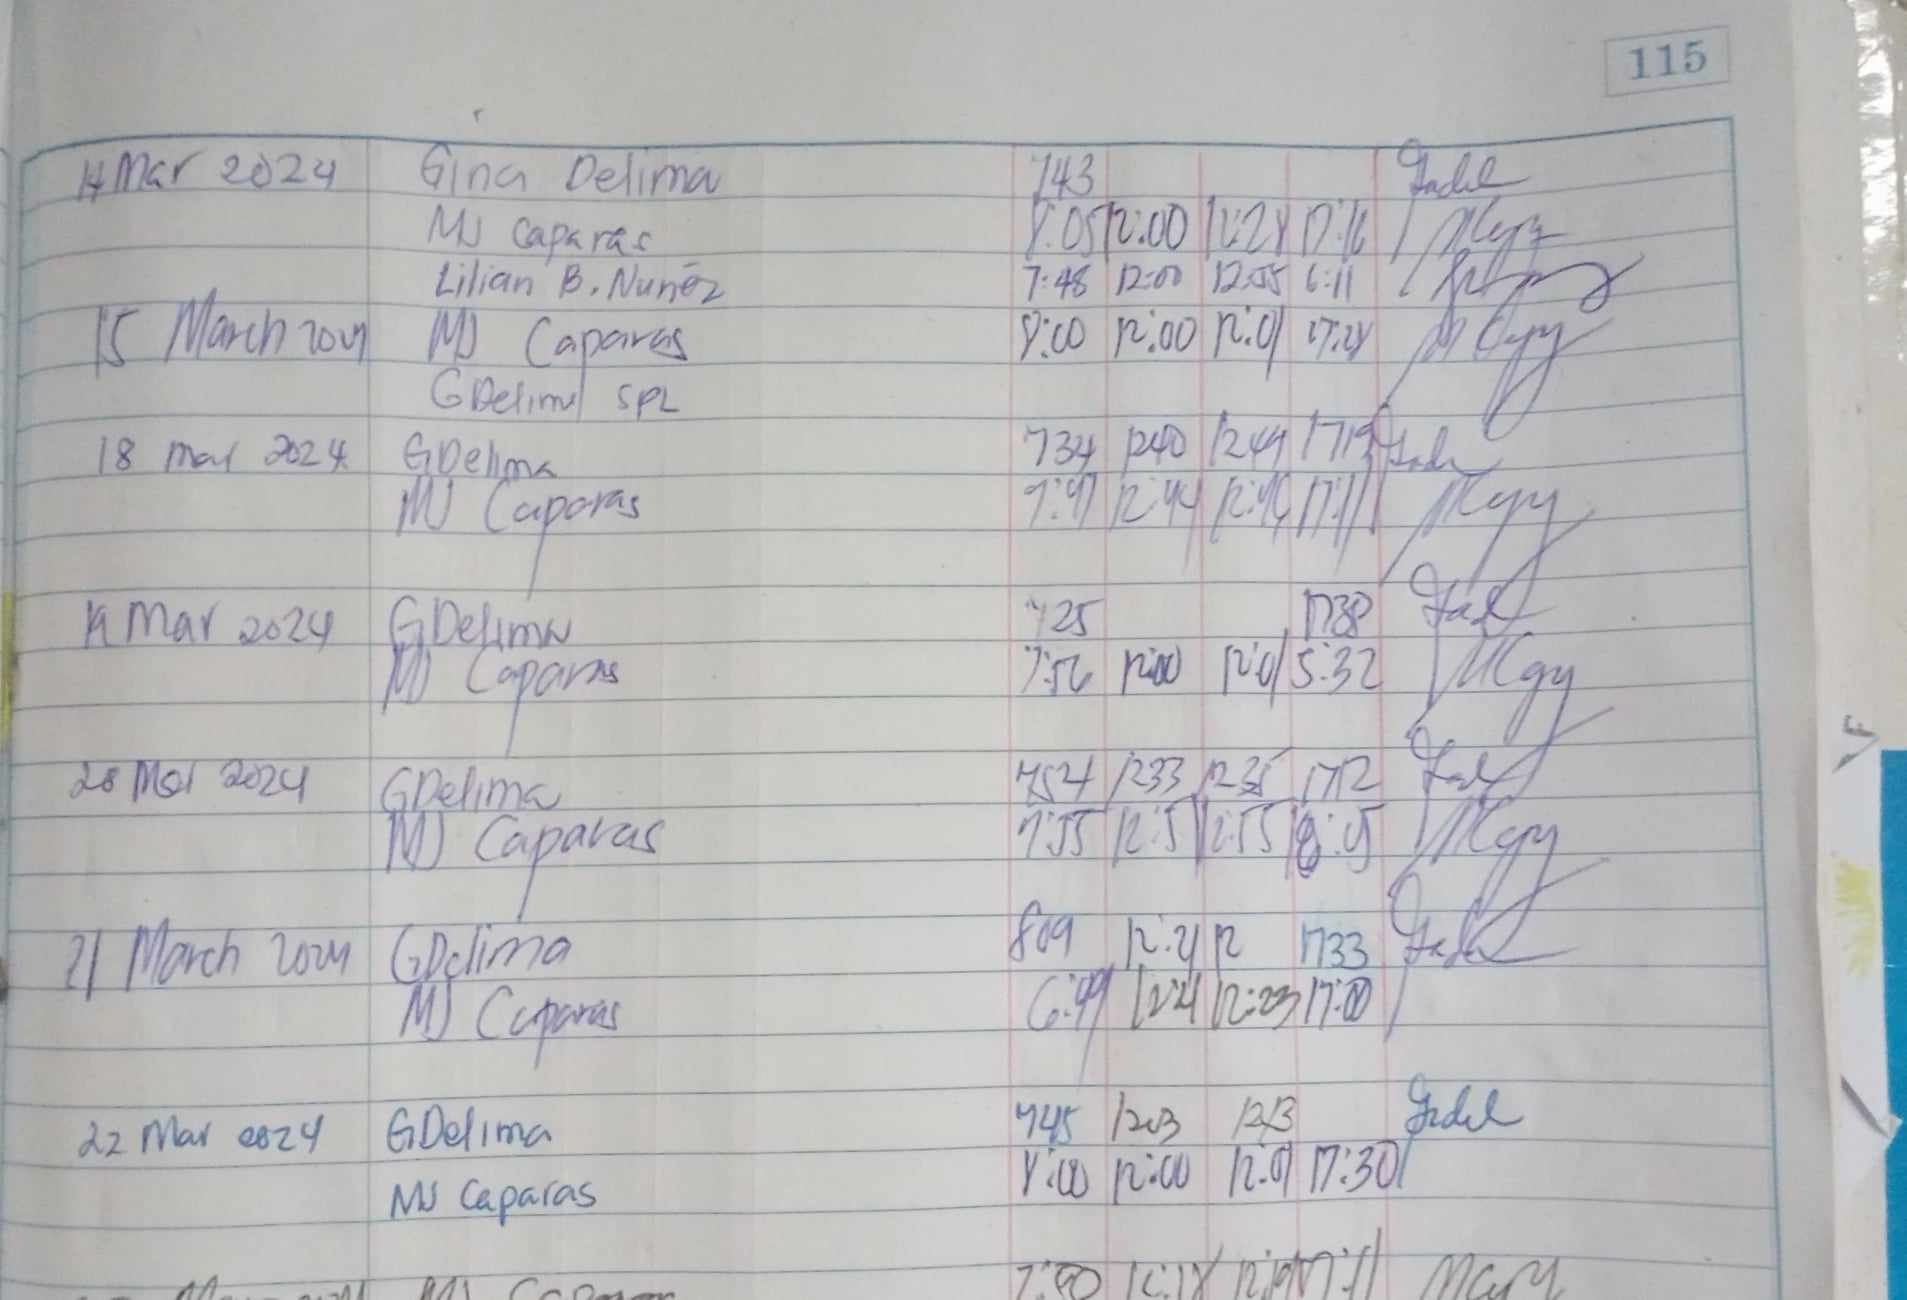 115
14 Mar 2024 Gina Delima 743
MJ Caparas 8:05 12:00 12:28 17:16
Lilian B. Nuñez 7:48 12:00 12:55 6:11
15 March 2024 MJ Caparas 8:00 12:00 12:01 17:28
GDelima SPL
18 mar 2024 GDelima 734 1240 1249 1713
MJ Caparas 7:47 12:44 12:46 17:11
19 Mar 2024 GDelima 725 1738
MJ Caparas 7:56 12:00 12:01 5:32
20 Mar 2024 GDelima 754 1233 1235 1712
MJ Caparas 7:55 12:51 12:55
21 March 2024 GDelima 809 12:21 12 1733
MJ Caparas 6:49 12:21 12:23 17:00
22 Mar 2024 GDelima 745 1203 1213
MJ Caparas 8:00 12:00 12:01 17:30
MJ Caparas 12:18